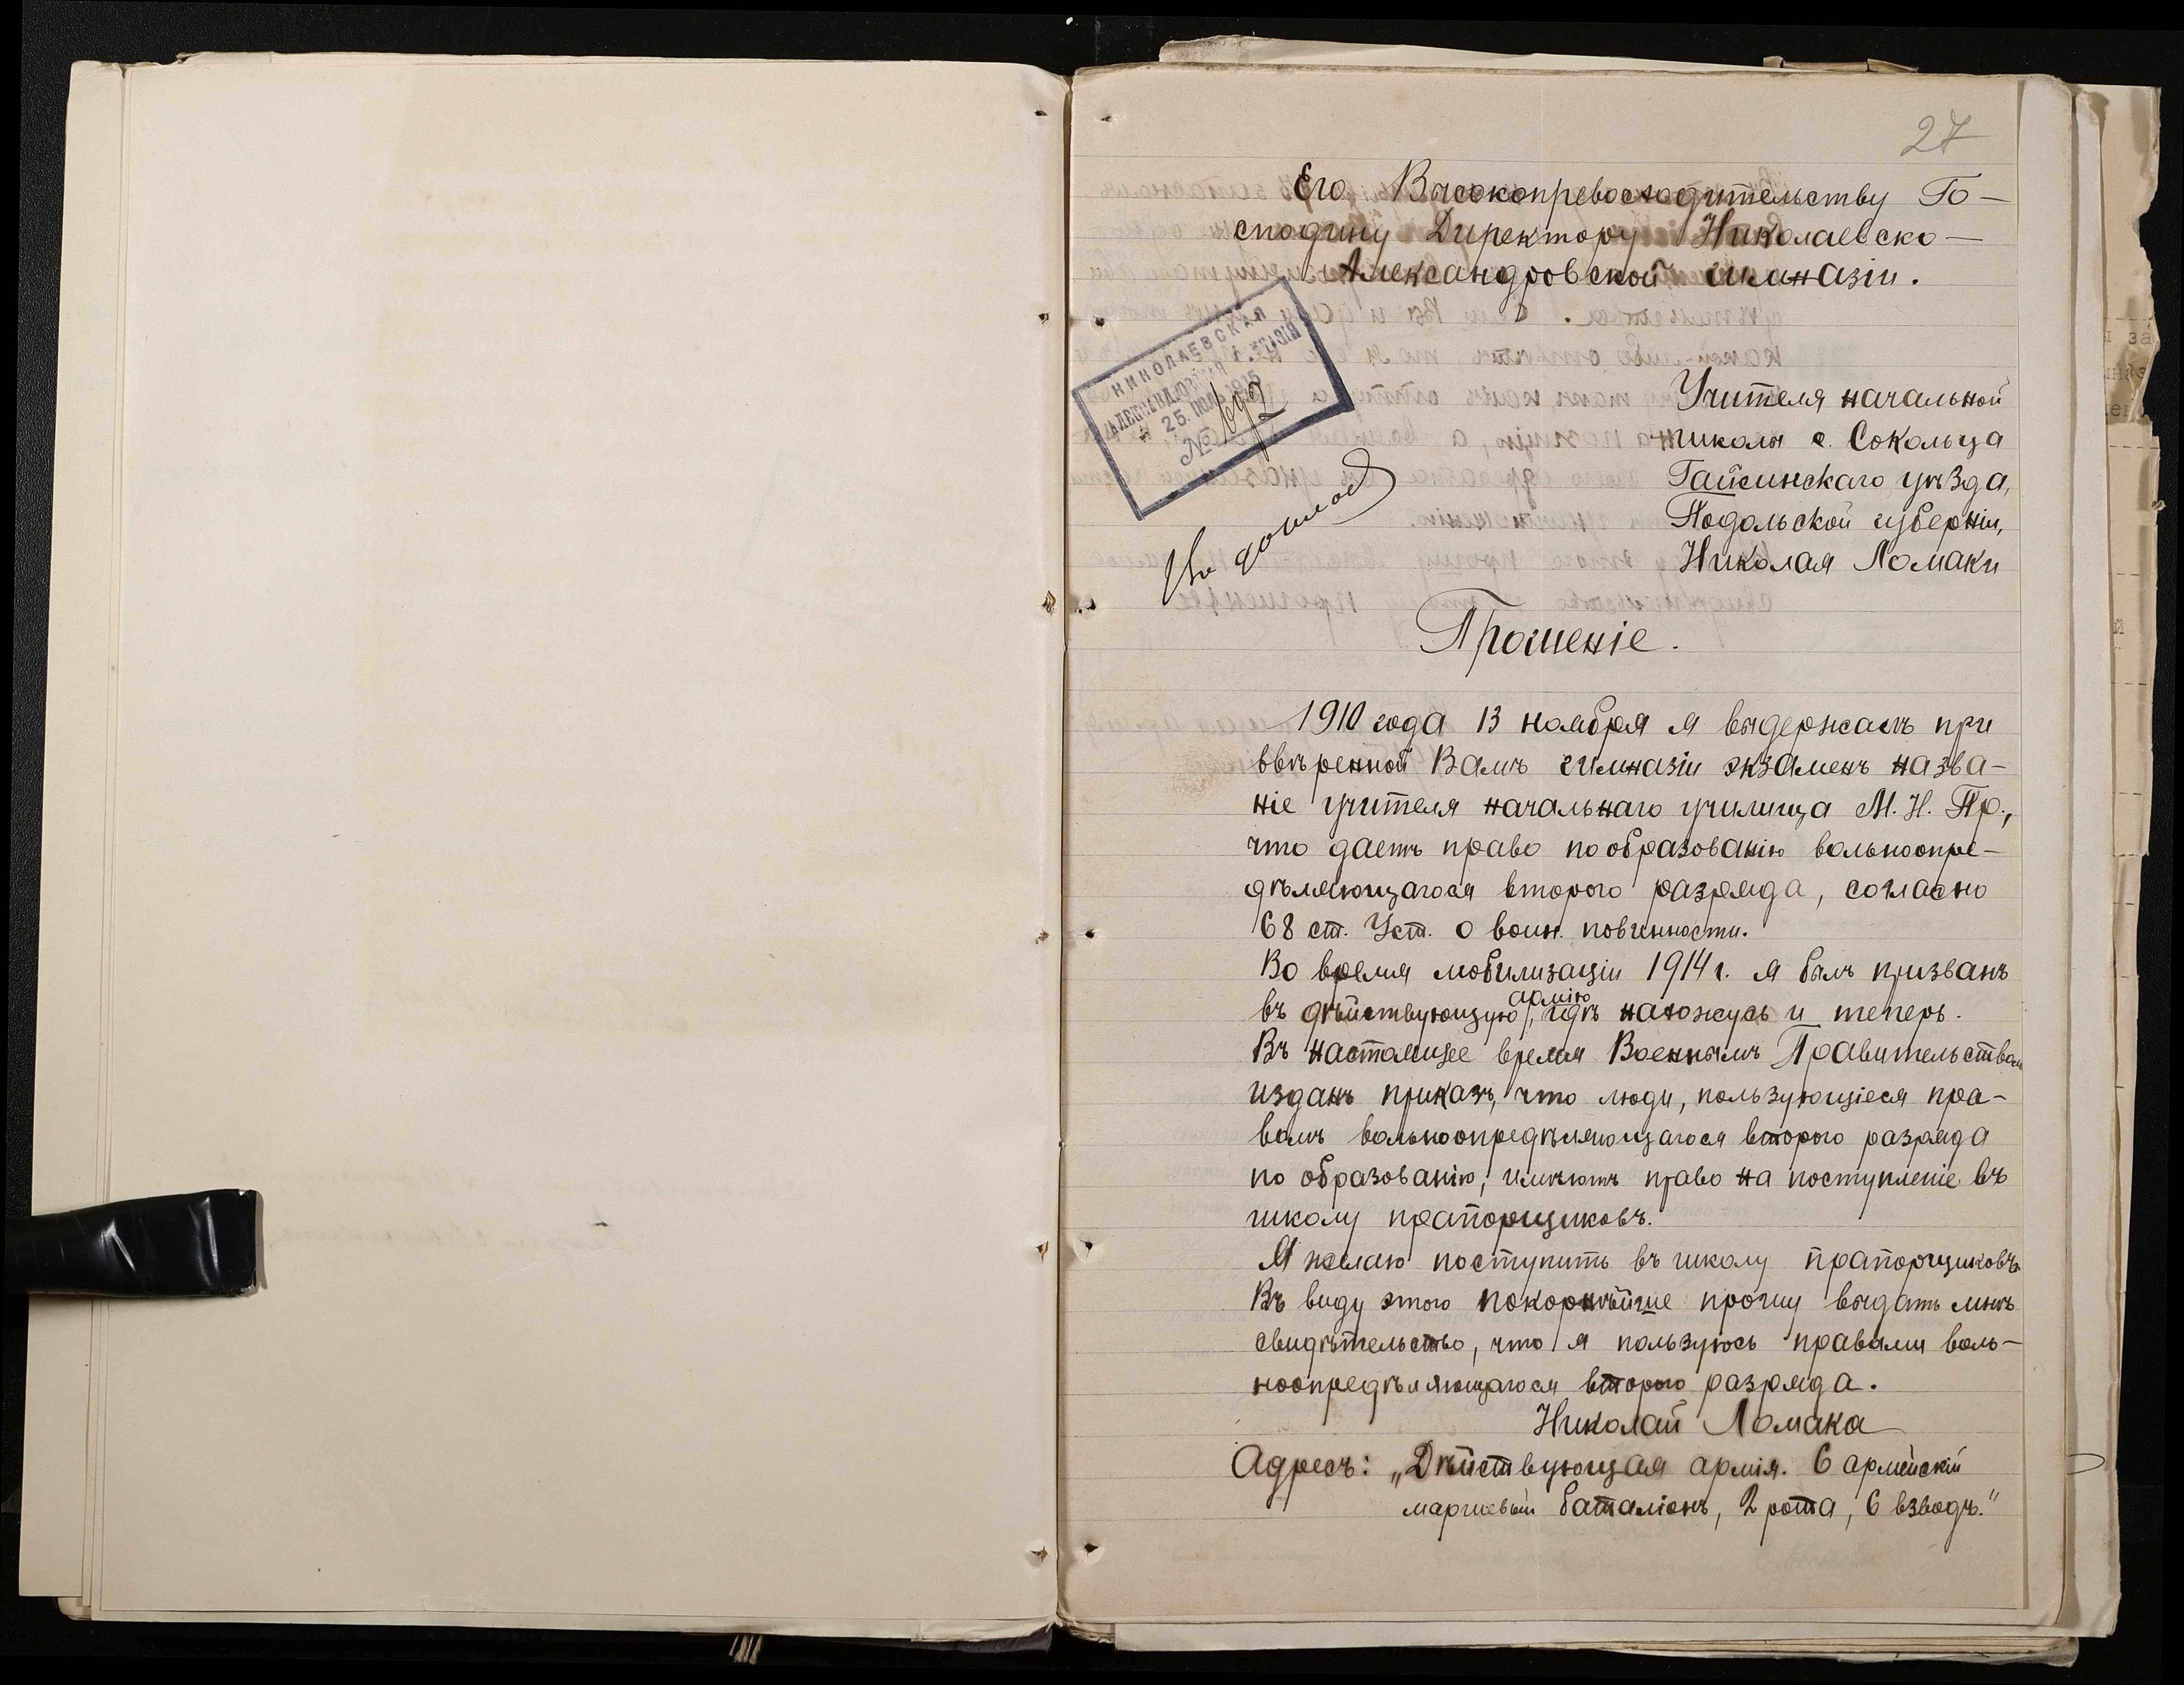 27
Его Высокопревосходительству Го-
сподину Директору Николаевско-
Александровской гимназіи.
НИКОЛАЕВСКАЯ
АЛЕКСАНДРОВСКАЯ ГИМНАЗІЯ
25. ІЮЛЬ 1915
№
Учителя начальной
школы с. Сокольца
Гайсинскаго уѣзда,
Подольской губерніи,
Николая Ломаки
Прошеніе.
1910 года 13 ноября я выдержалъ при
ввѣренной Вамъ гимназіи экзаменъ назва-
ніе учителя начальнаго училища М. Н. Пр.,
что даетъ право по образованію вольноопре-
дѣляющагося второго разряда, согласно
68 ст. Уст. о воин. повинности.
Во время мобилизаціи 1914 г. я былъ призванъ
въ дѣйствующую армію, гдѣ нахожусь и теперь.
Въ настоящее время Военнымъ Правительствомъ
изданъ приказъ, что люди, пользующіеся пра-
вамъ вольноопредѣляющагося второго разряда
по образованію, имѣютъ право на поступленіе въ
школу прапорщиковъ.
Я желаю поступить въ школу прапорщиковъ.
Въ виду этого покорнѣйше прошу выдать мнѣ
свидѣтельство, что я пользуюсь правами воль-
ноопредѣляющагося второго разряда.
Николай Ломака
Адресъ: „Дѣйствующая армія. 6 армейскій
маршевый баталіонъ, 2 рота, 6 взводъ."